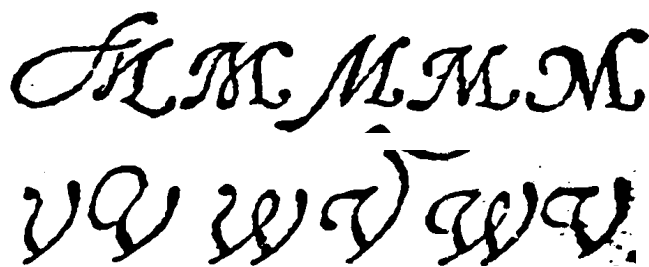 M M M M M
V V W V W V